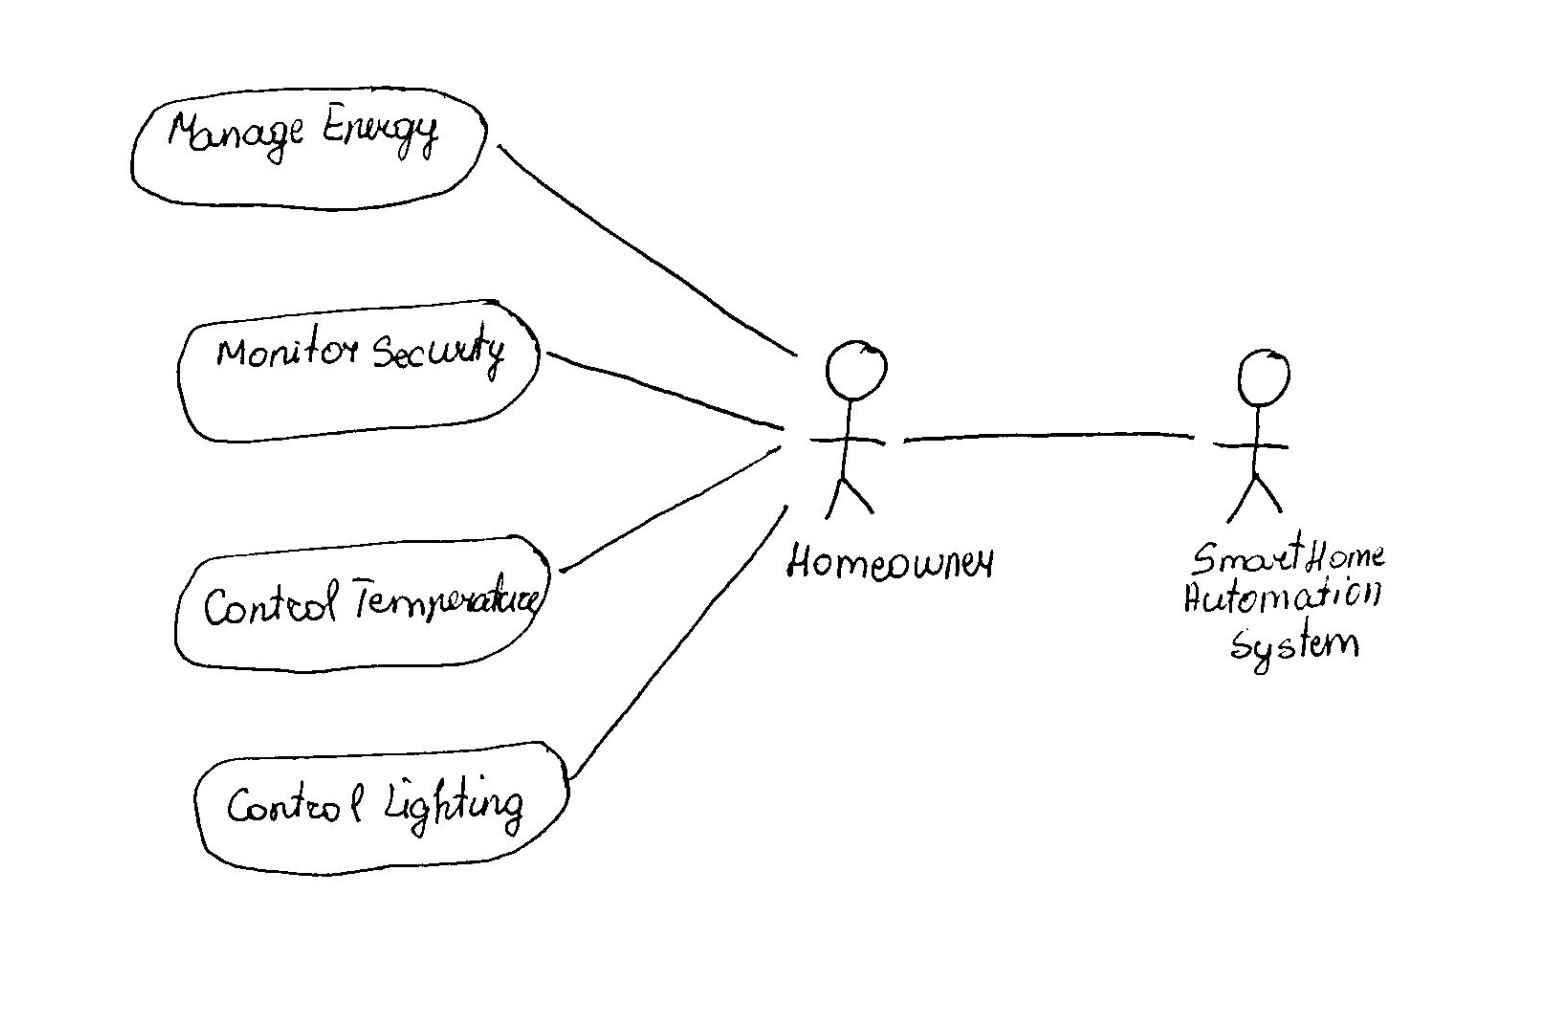 Manage Energy
Monitor Security
Control Temperature
Control Lighting
Homeowner
SmartHome
Automation
System